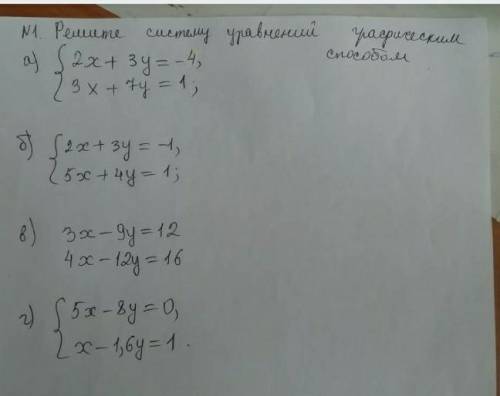 №1. Решите систему уравнений графическим способом
а) { 2x + 3y = -4,
3x + 7y = 1;
б) { 2x + 3y = -1,
5x + 4y = 1;
в) 3x - 9y = 12
4x - 12y = 16
г) { 5x - 8y = 0,
x - 1,6y = 1.